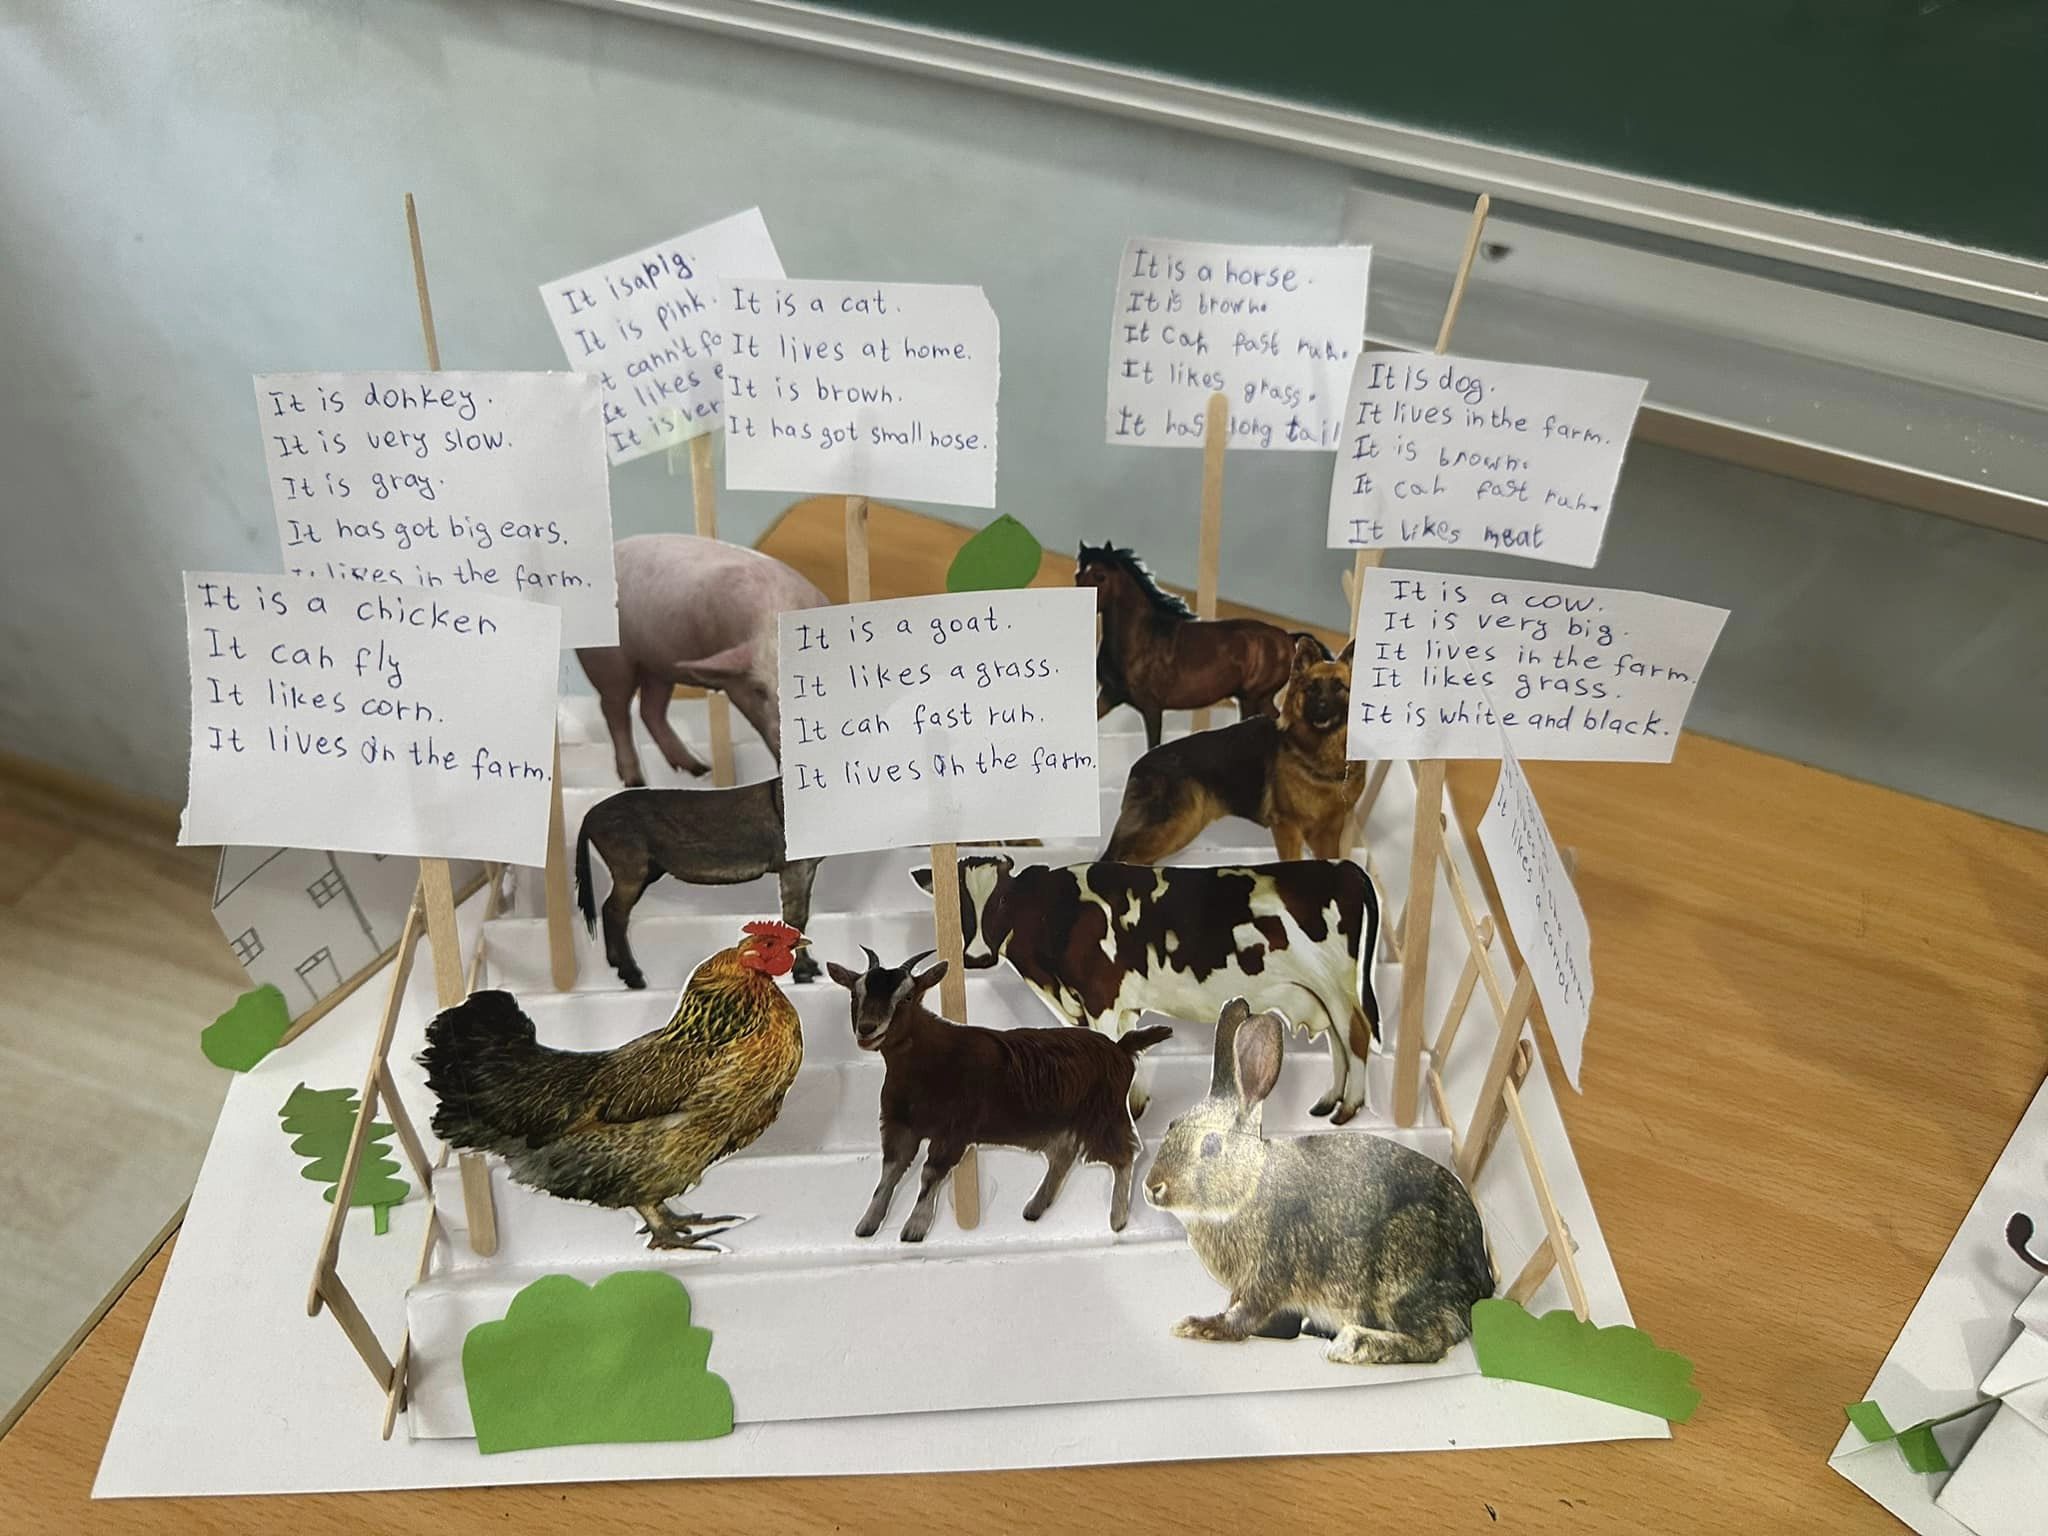 It is a pig.
It is pink.
It cann't
It likes
It is
It is a cat.
It lives at home.
It is brown.
It has got small nose.
It is a horse.
It is brown.
It can fast run.
It likes grass.
It has long tail
It is dog.
It lives in the farm.
It is brown.
It can fast run.
It likes meat
It is donkey.
It is very slow.
It is gray.
It has got big ears.
It lives in the farm.
It is a chicken
It can fly
It likes corn.
It lives in the farm.
It is a goat.
It likes a grass.
It can fast run.
It lives in the farm.
It is a cow.
It is very big.
It lives in the farm.
It likes grass.
It is white and black.
It lives in the farm
It likes a carrot